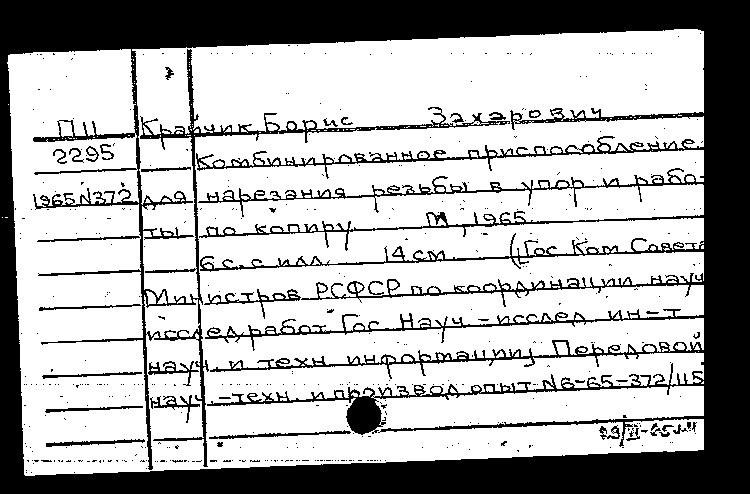 П11 Крайчик, Борис Захарович
2295 Комбинированное приспособление
1965 N372 для нарезания резьбы в упор и рабо-
ты по копиру М, 1965
6 с. с илл. 14 см. (Гос Ком Совета
Министров РСФСР по координации науч
исслед, работ Гос. Науч -исслед ин-т
науч. и техн информации) Передовой
науч. -техн. и производ опыт N6-65-372/115